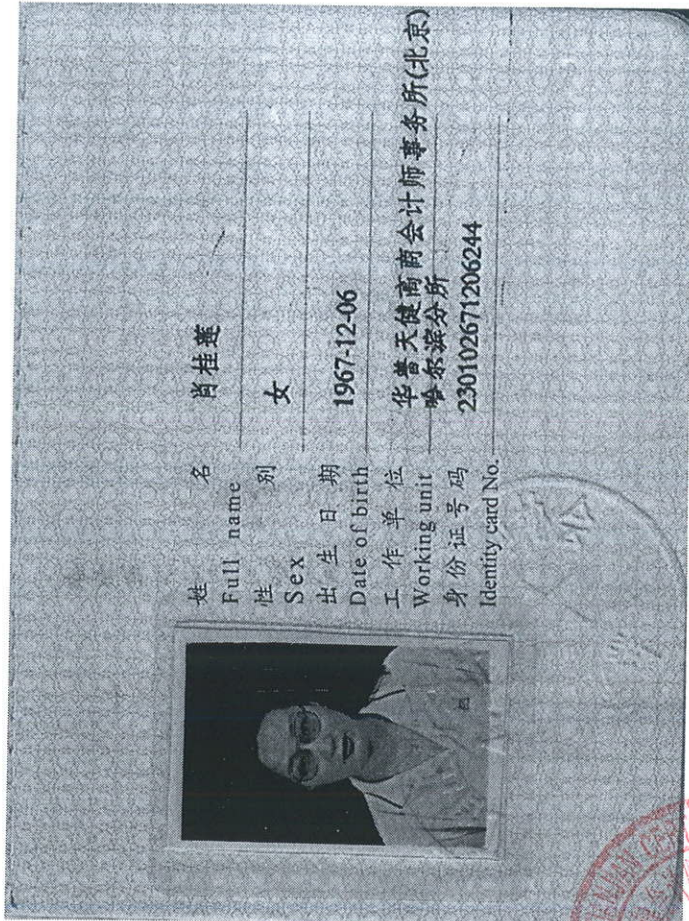 姓 名 肖桂莲
Full name
性 别 女
Sex
出 生 日 期 1967-12-06
Date of birth
工 作 单 位 华普天健高商会计师事务所(北京)
Working unit 哈尔滨分所
身 份 证 号 码 230102671206244
Identity card No.